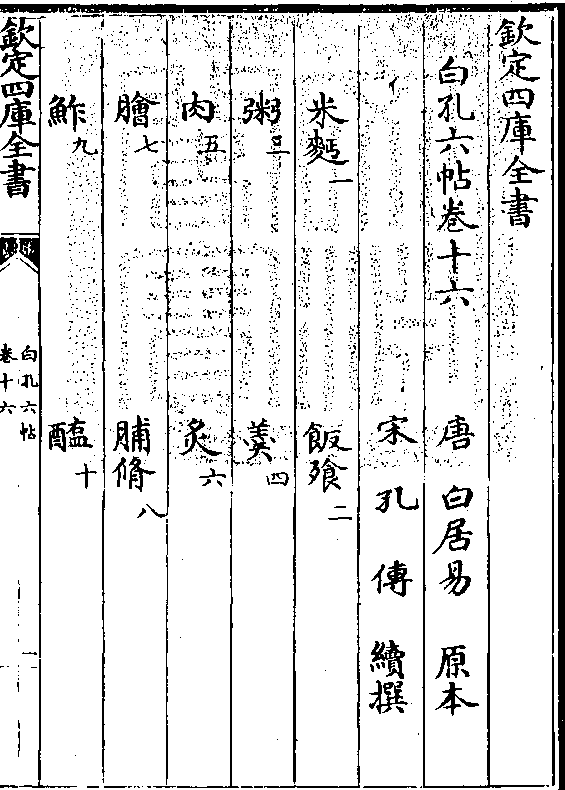 欽定四庫全書
白孔六帖卷十六　唐　白居易　原本
宋　孔　傳　續撰
米麪一　飯飱二
粥三　羹四
肉五　炙六
膾七　脯脩八
鮓九　醢十
欽定四庫全書
白孔六帖
卷十六
一